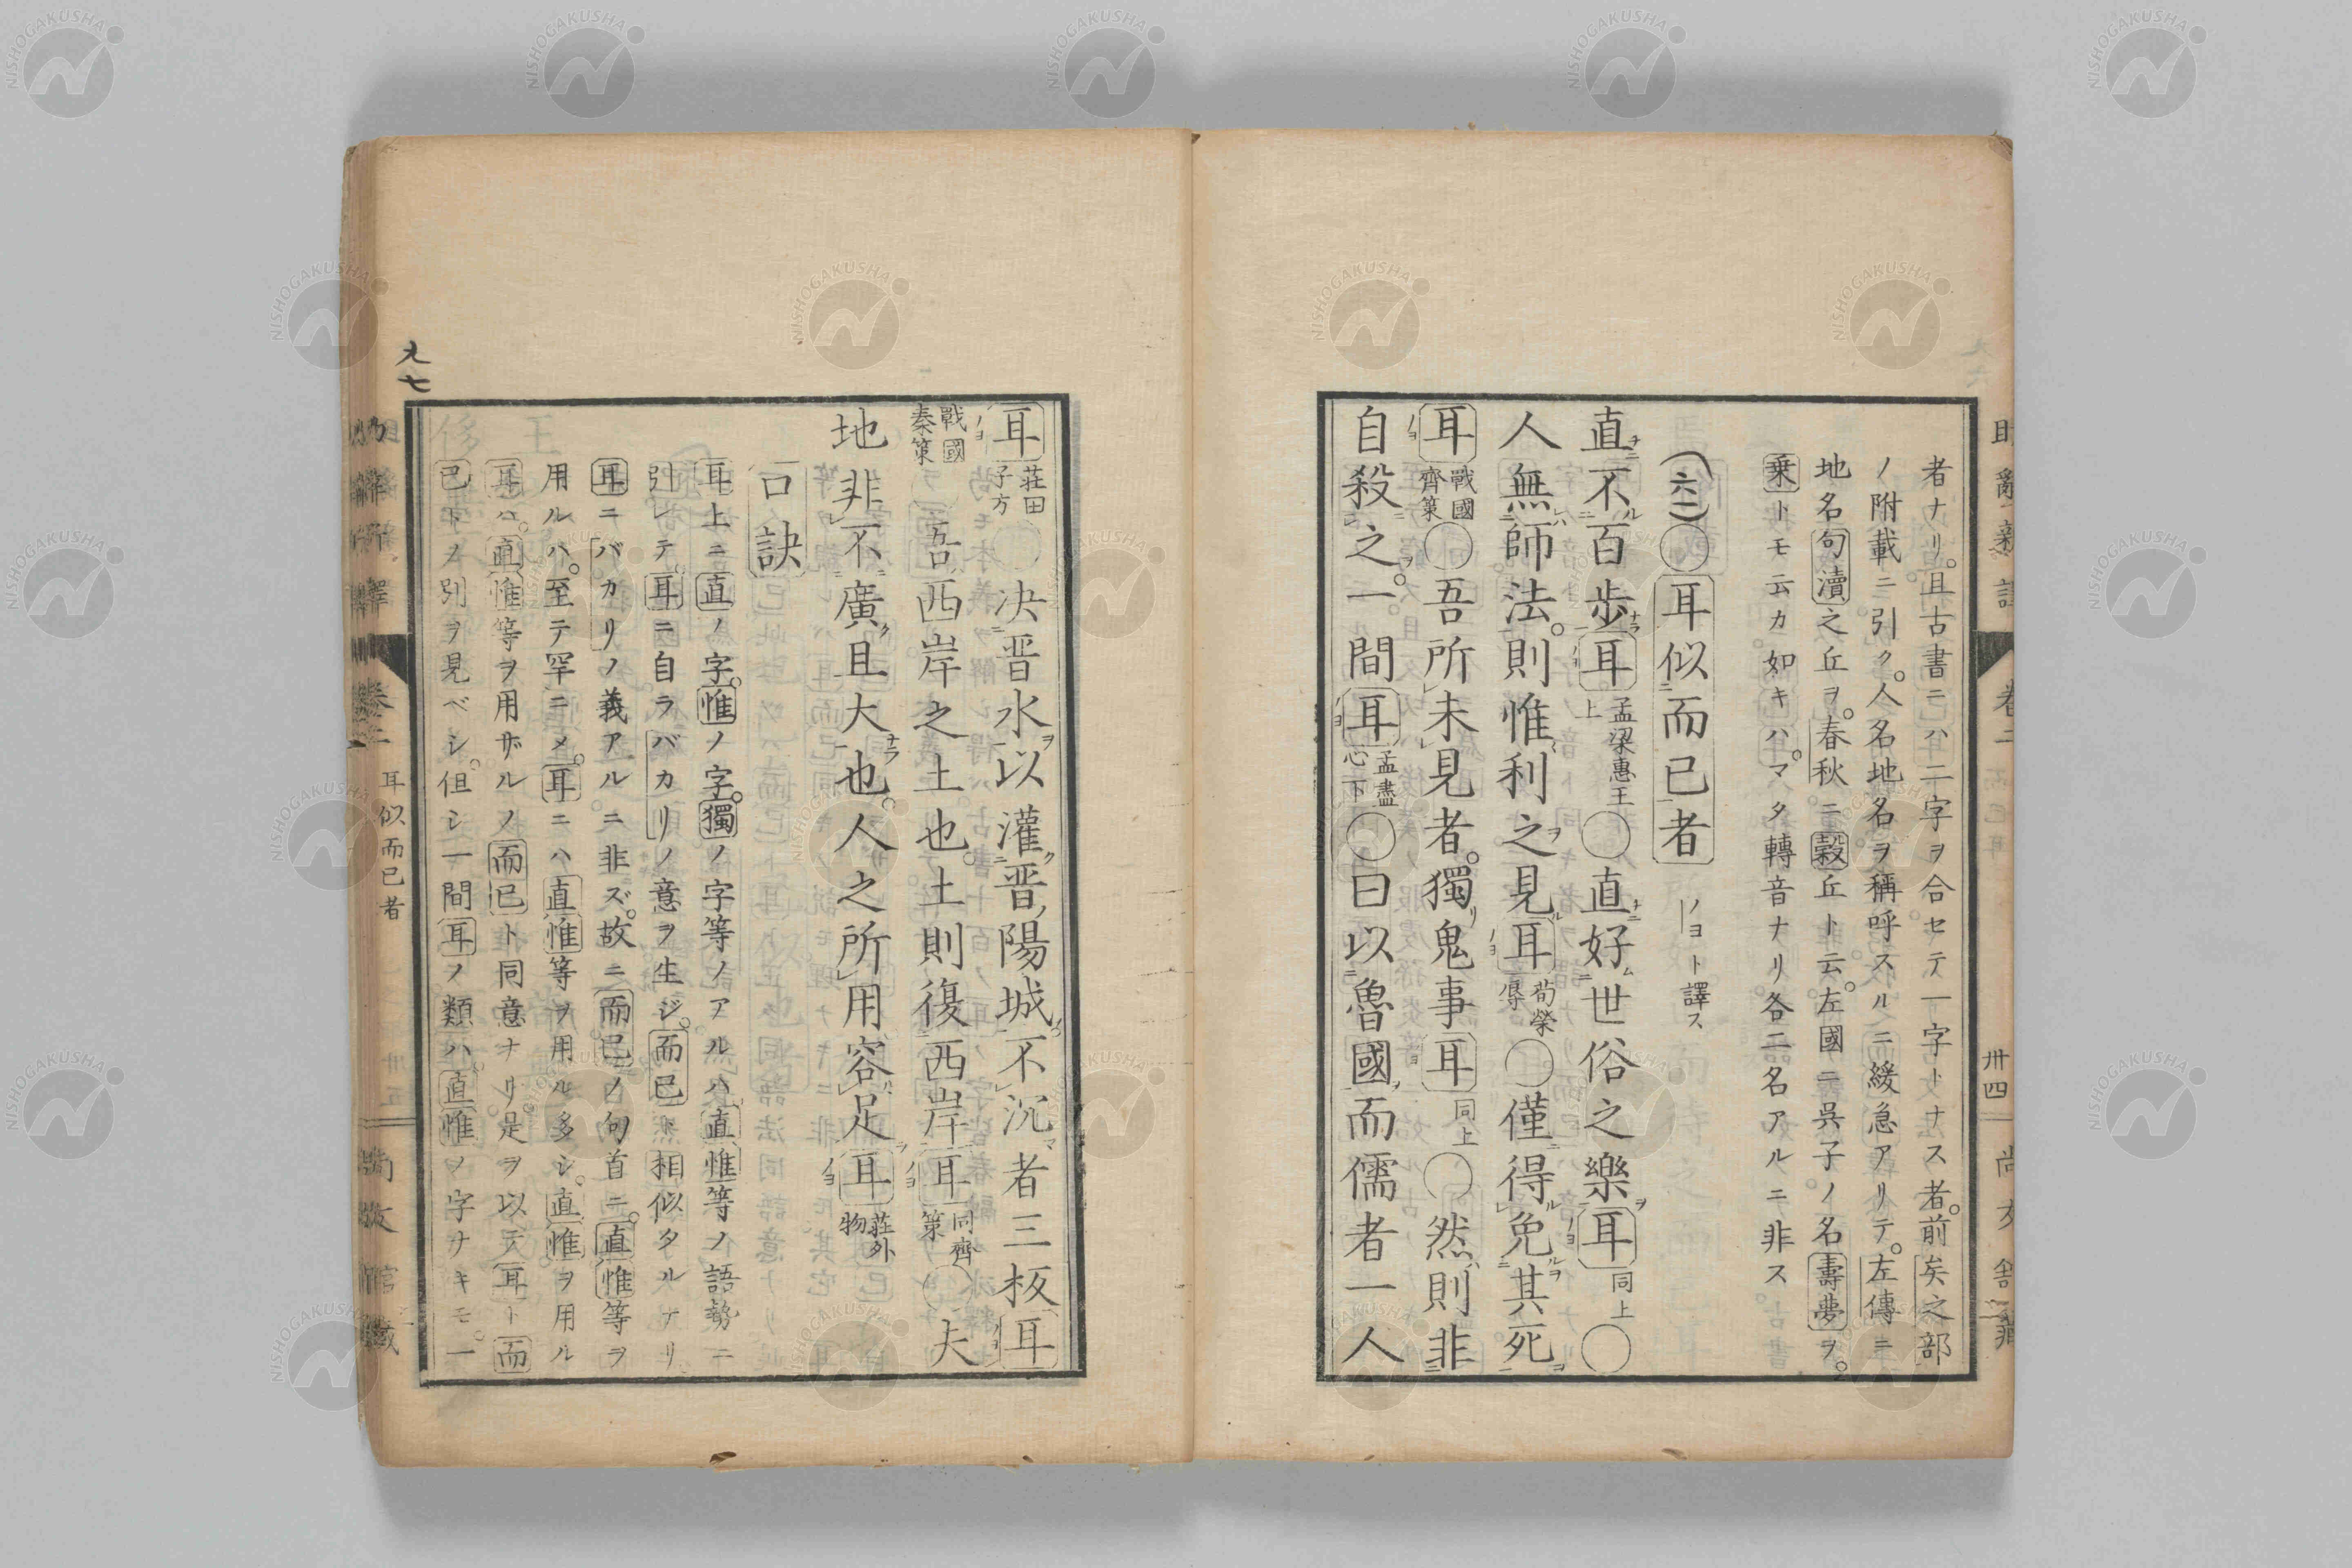 者ナリ。且古書ニハ二字ヲ合セテ一字トナス者。前矣之部
ノ附載ニ引ク。人名地名ヲ稱呼スルニ緩急アリテ。左傳ニ
地名句瀆之丘ヲ。春秋ニ穀丘ト云。左國ニ呉子ノ名壽夢ヲ。
乗トモ云カ如キハ。マタ轉音ナリ各二名アルニ非ス
(六二)○耳似而已者 ノヨト譯ス
直不百步耳 孟梁惠王上○直好世俗之樂耳 同上○
人無師法。則惟利之見耳 荀榮辱○僅得免其死
耳 戰國齊策○吾所未見者。獨鬼事耳 同上○然則非
自殺之。一間耳 孟盡心下○曰以魯國而儒者一人
卷二
卅四
耳 荘田子方○决晋水以灌晋陽城不沉者三板耳
戰國秦策 吾西岸之土也。土則復西岸耳 同齊策○夫
地非不廣且大也人之所用容足耳 荘外物
口訣
耳上ニ直ノ字。惟ノ字。獨ノ字等ノアルハ直惟等ノ語勢ニ
引レテ耳ニ自ラバカリノ意ヲ生ジ。而已ト相似タルナリ
耳ニバカリノ義アルニ非ズ。故ニ而已ノ句首ニ。直惟等ヲ
用ルハ。至テ罕ニメ。耳ニハ直惟等ヲ用ル多シ。直惟ヲ用ル
耳ハ。直惟等ヲ用ザルノ而已ト同意ナリ是ヲ以テ耳ト而
已トノ別ヲ見ベシ。但シ一間耳ノ類ハ直惟ノ字ナキモ。一
耳似而已者
九七